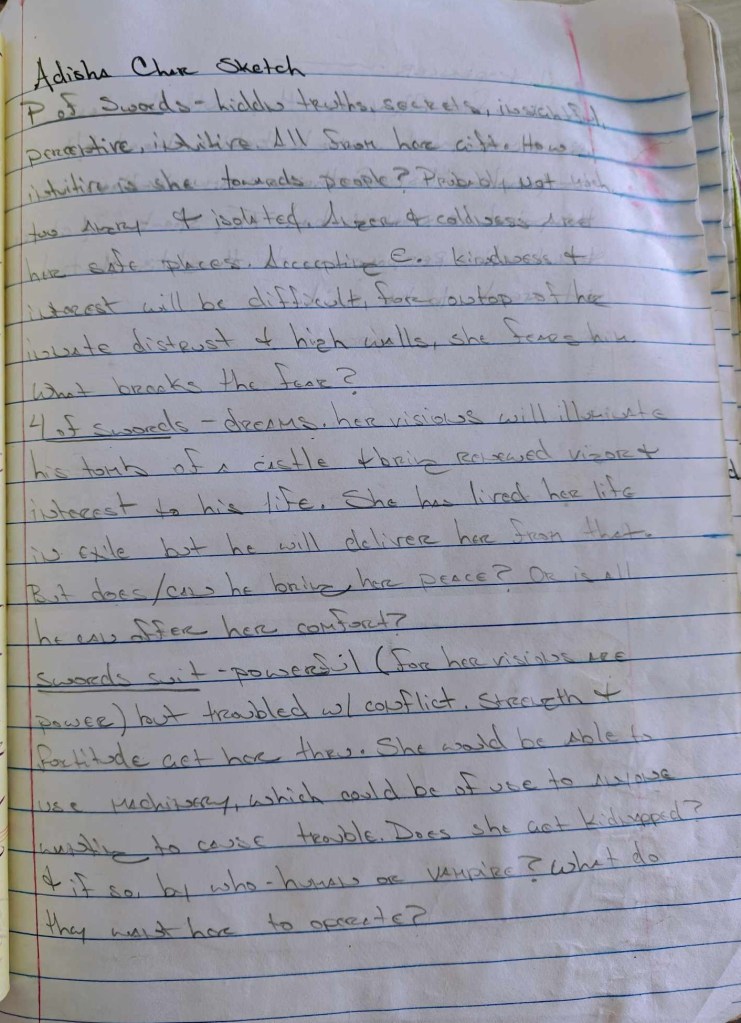 Adisha Char Sketch
P of Swords - hidden truths, secrets, insightful,
perceptive, intuitive. All from her gift. How
intuitive is she towards people? Probably not much,
too angry & isolated. Anger & coldness are
her safe places. Accepting E. kindness &
interest will be difficult, for ontop of her
innate distrust & high walls, she fears him.
What breaks the fear?
4 of swords - dreams. her visions will illuminate
his tomb of a castle & bring renewed vigor &
interest to his life. She has lived her life
in exile but he will deliver her from that.
But does/can he bring her peace? Or is all
he can offer her comfort?
Swords suit - powerful (for her visions are
power) but troubled w/ conflict. Strength &
fortitude get her thru. She would be able to
use machinery, which could be of use to anyone
wanting to cause trouble. Does she get kidnapped?
& if so, by who - human or vampire? What do
they want her to operate?